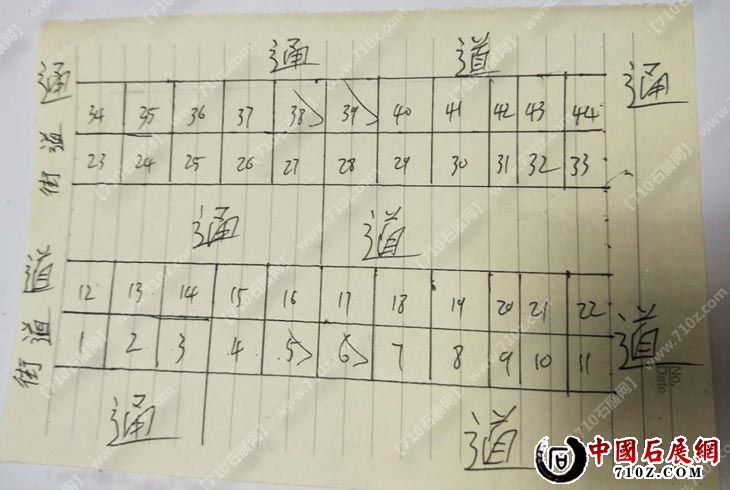 通 道
34 35 36 37 38 39 40 41 42 43 44
23 24 25 26 27 28 29 30 31 32 33
通 道
12 13 14 15 16 17 18 19 20 21 22
1 2 3 4 5 6 7 8 9 10 11
通 道
通道
通
道
街道
街道
No.
Date
中國石展網
710Z.COM
【710石展网】www.710z.com